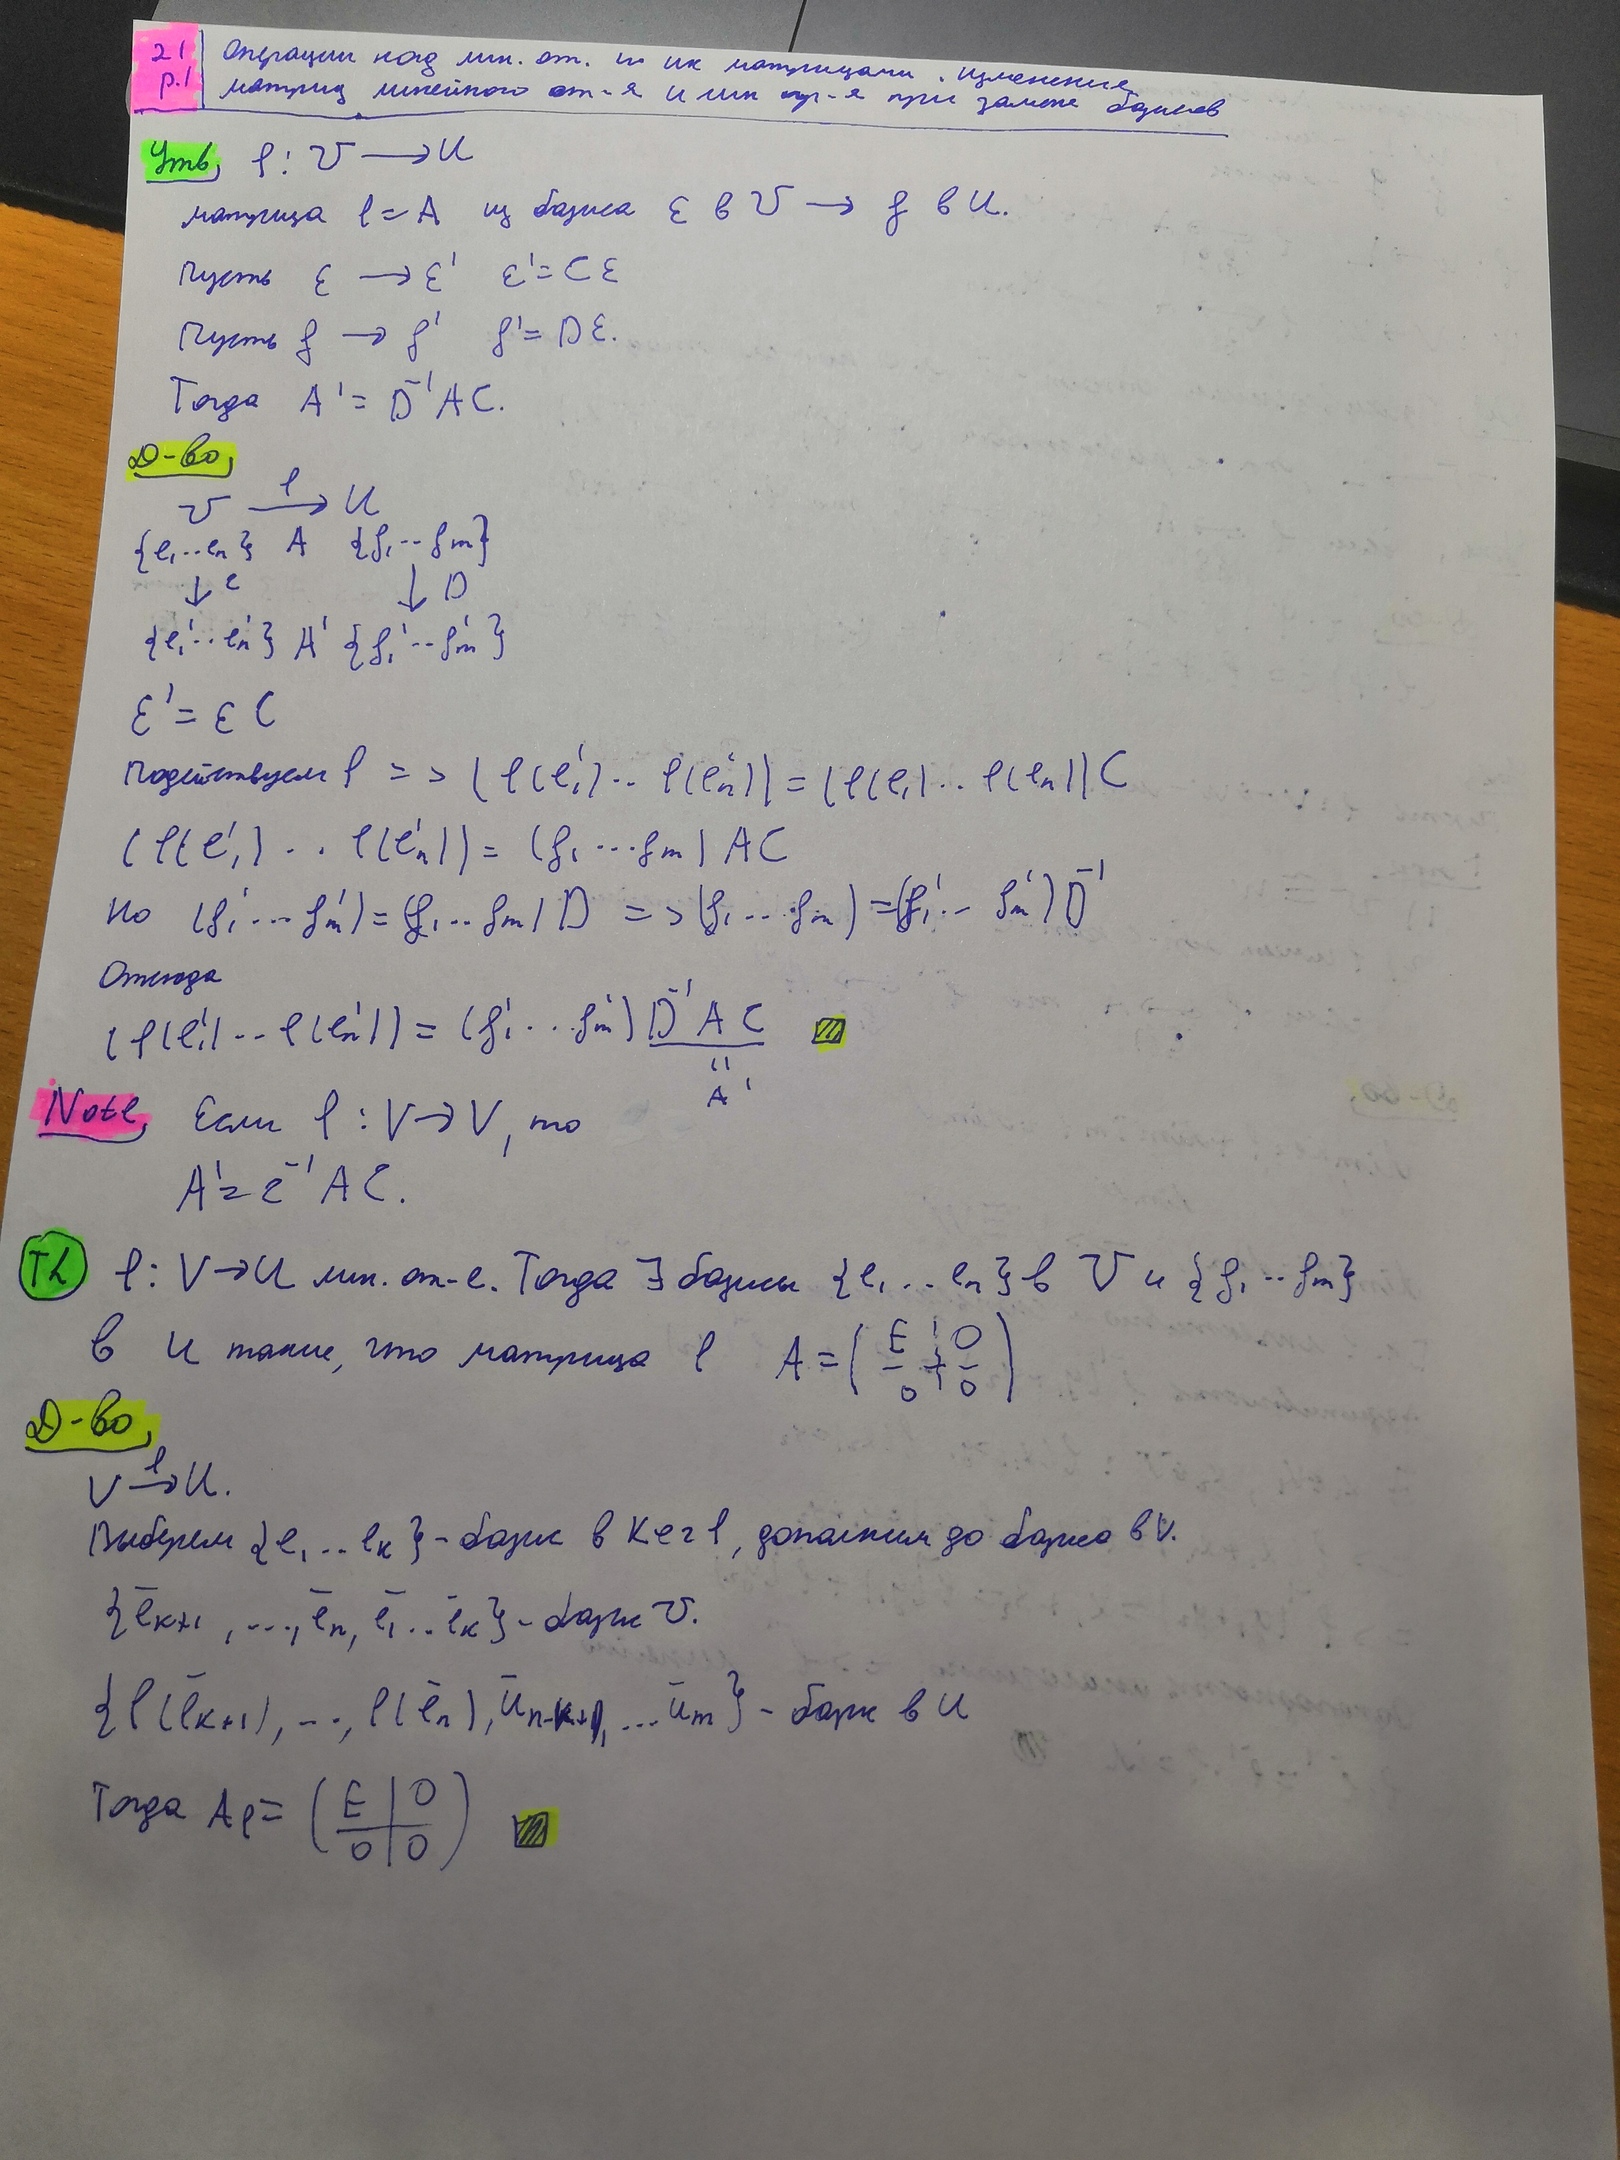 21 Операции над лин. от. и их матрицами. Изменение
р.1 матриц линейного от-я и лин пр-я при замене базисов
Утв, φ: V → U
матрица φ = A из базиса ε в V → f в U.
Пусть ε → ε' ε' = C ε
Пусть f → f' f' = D ε.
Тогда A' = D⁻¹AC.
Д-во,
V →φ U
{e₁..eₙ} A {f₁..fₘ}
↓ C ↓ D
{e₁'..eₙ'} A' {f₁'..fₘ'}
ε' = ε C
Подействуем φ => (φ(e₁')..φ(eₙ')) = (φ(e₁)..φ(eₙ)) C
(φ(e₁')..φ(eₙ')) = (f₁...fₘ) AC
Но (f₁'...fₘ') = (f₁...fₘ) D => (f₁...fₘ) = (f₁'..fₘ') D⁻¹
Отсюда
(φ(e₁')..φ(eₙ')) = (f₁'...fₘ') D⁻¹AC
"
A'
Note, Если φ: V → V, то
A' = C⁻¹AC.
Th φ: V → U лин. от-е. Тогда ∃ базисы {e₁..eₙ} в V и {f₁..fₘ}
в U такие, что матрица φ A = (E | 0
0 | 0)
Д-во,
V →φ U.
Выберем {e₁..eₖ} - базис в Ker φ, дополним до базиса в V.
{ēₖ₊₁, ..., ēₙ, ē₁..ēₖ} - базис V.
{φ(ēₖ₊₁), .., φ(ēₙ), ūₙ₋ₖ₊₁, ...ūₘ} - базис в U
Тогда Aφ = (E | 0
0 | 0)